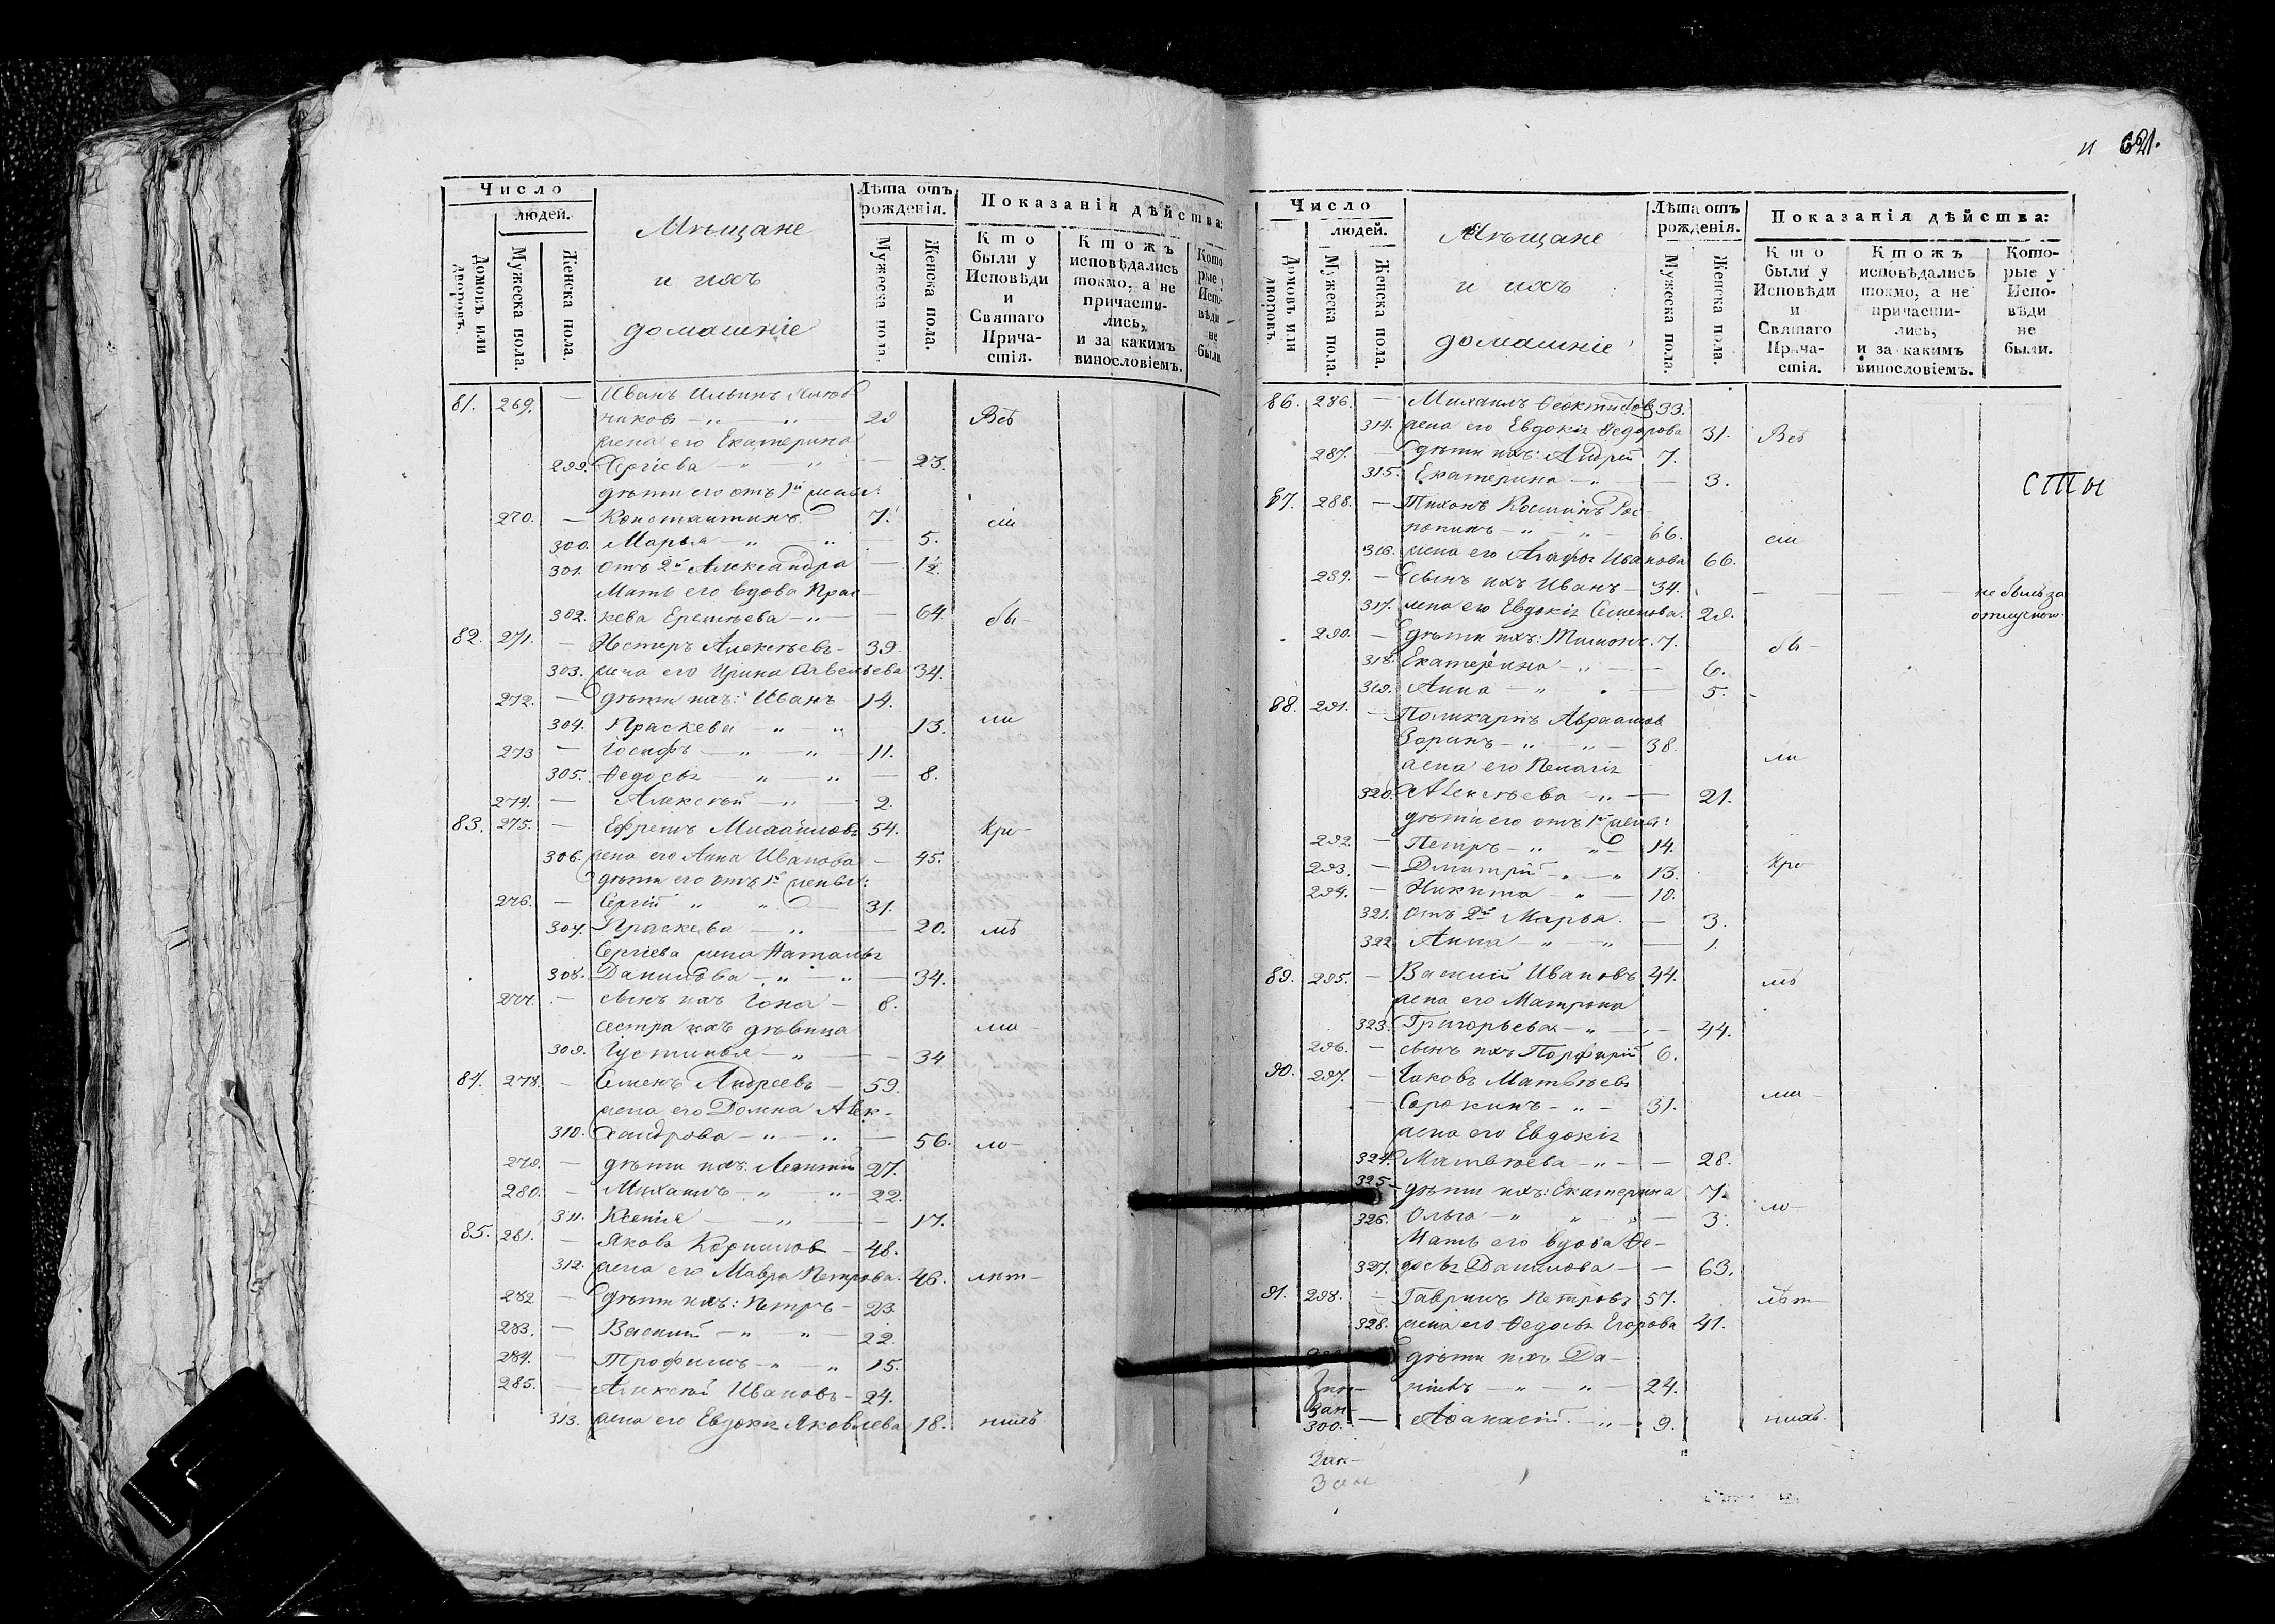 Число
людей.
Домовъ или дворовъ.
Мужеска пола.
Женска пола.
Мѣщане
и ихъ
домашніе
Лѣта отъ рожденія.
Мужеска пола.
Женска пола.
Показанія дѣйства:
Кто были у Исповѣди и Святаго Прича-стія.
Ктожъ исповѣдались токмо, а не причасти-лись, и за какимъ винословіемъ.
Кото-рые у Испо-вѣди не были.
81. 269. — Иванъ Ильинъ
никовъ — 29 Всѣ
жена его Екатерина
299. Сергіева — 23.
дѣти его отъ 1й жены:
270. — Константинъ 7. сіи
300. Марья — 5.
301. отъ 2й Александра — 1½.
Мать его вдова Прас-
302. кева Еремѣева — 64. бы-
82. 271. — Нестеръ Алексѣевъ — 39.
303. жена его Ирина Савельева 34.
272. — дѣти ихъ: Иванъ 14.
304. Праскева — 13. ли
273 — Іосифъ — 11.
305. Ѳедосья — 8.
274. — Алексѣй — 2.
83. 275. — Ефремъ Михайловъ 54. кро-
306. жена его Анна Иванова — 45.
дѣти его отъ 1й жены:
276. — Сергій — 31.
307. Праскева — 20. мѣ
Сергіева жена Наталья
308. Данилова — 34.
277. — сынъ ихъ Іона — 8.
сестра ихъ дѣвица ма-
309. Іустинья — 34
84. 278. — Семенъ Андреевъ — 59.
жена его Домна Алек-
310. сандрова — 56. ло-
279. — дѣти ихъ: Леонтій 27.
280. — Михаилъ — 22.
311. Ксенія — 17.
85. 281. — Яковъ Корниловъ — 48.
312. жена его Мавра Петрова. 46. лѣт-
282 — дѣти ихъ: Петръ — 23.
283. — Василій — 22.
284. — Трофимъ — 15.
285. — Алексѣй Ивановъ — 24.
313. жена его Евдокія Яковлева 18. нихъ
и 621.
Число
людей.
Домовъ или дворовъ.
Мужеска пола.
Женска пола.
Мѣщане
и ихъ
домашніе
Лѣта отъ рожденія.
Мужеска пола.
Женска пола.
Показанія дѣйства:
Кто были у Исповѣди и Святаго Прича-стія.
Ктожъ исповѣдались токмо, а не причасти-лись, и за какимъ винословіемъ.
Кото-рые у Испо-вѣди не были.
86. 286. — Михаилъ Ѳеоктистов 33.
314. жена его Евдокія Ѳедорова 31. Всѣ
287. — дѣти ихъ: Андрей 7.
315. Екатерина — 3.
сты
87. 288. — Тихонъ Космінъ Рос-
попинъ — 66. сіи
316. жена его Агафья Иванова 66.
289. — сынъ ихъ Иванъ — 34. — — — не былъ за
317. жена его Евдокія Семенова. 29. отлучкою.
290. — дѣти ихъ: Тимонъ. 7. бы-
318. Екатерина — 6.
319. Анна — 5.
88. 291. — Поликарпъ Авраамов
Зоринъ — 38. ли
жена его Пелагія
320. Алексѣева — 21.
дѣти его отъ 1й жены:
292. — Петръ — 14.
293. — Дмитрій — 13. кро-
294. — Никита — 10.
321. отъ 2й Марья. — 3.
322. Анна — 1.
89. 295. — Василій Ивановъ 44. мѣ
жена его Матрона
323. Григорьева — 44.
296. — сынъ ихъ Порфирій 6.
90. 297. — Іаковъ Матвѣевъ
— Сорокинъ — 31. ма-
жена его Евдокія
324. Матвѣева — 28.
325. — дѣти ихъ: Екатерина 7.
326. Ольга — 3. ло-
Мать его вдова Ѳе-
327. досья Данилова — 63.
91. 298. — Гаврилъ Петровъ 57. лѣт-
328. жена его Ѳедосья Егорова 41.
дѣти ихъ Да-
ніилъ — 24.
300. — Аѳанасій — 9. нихъ.